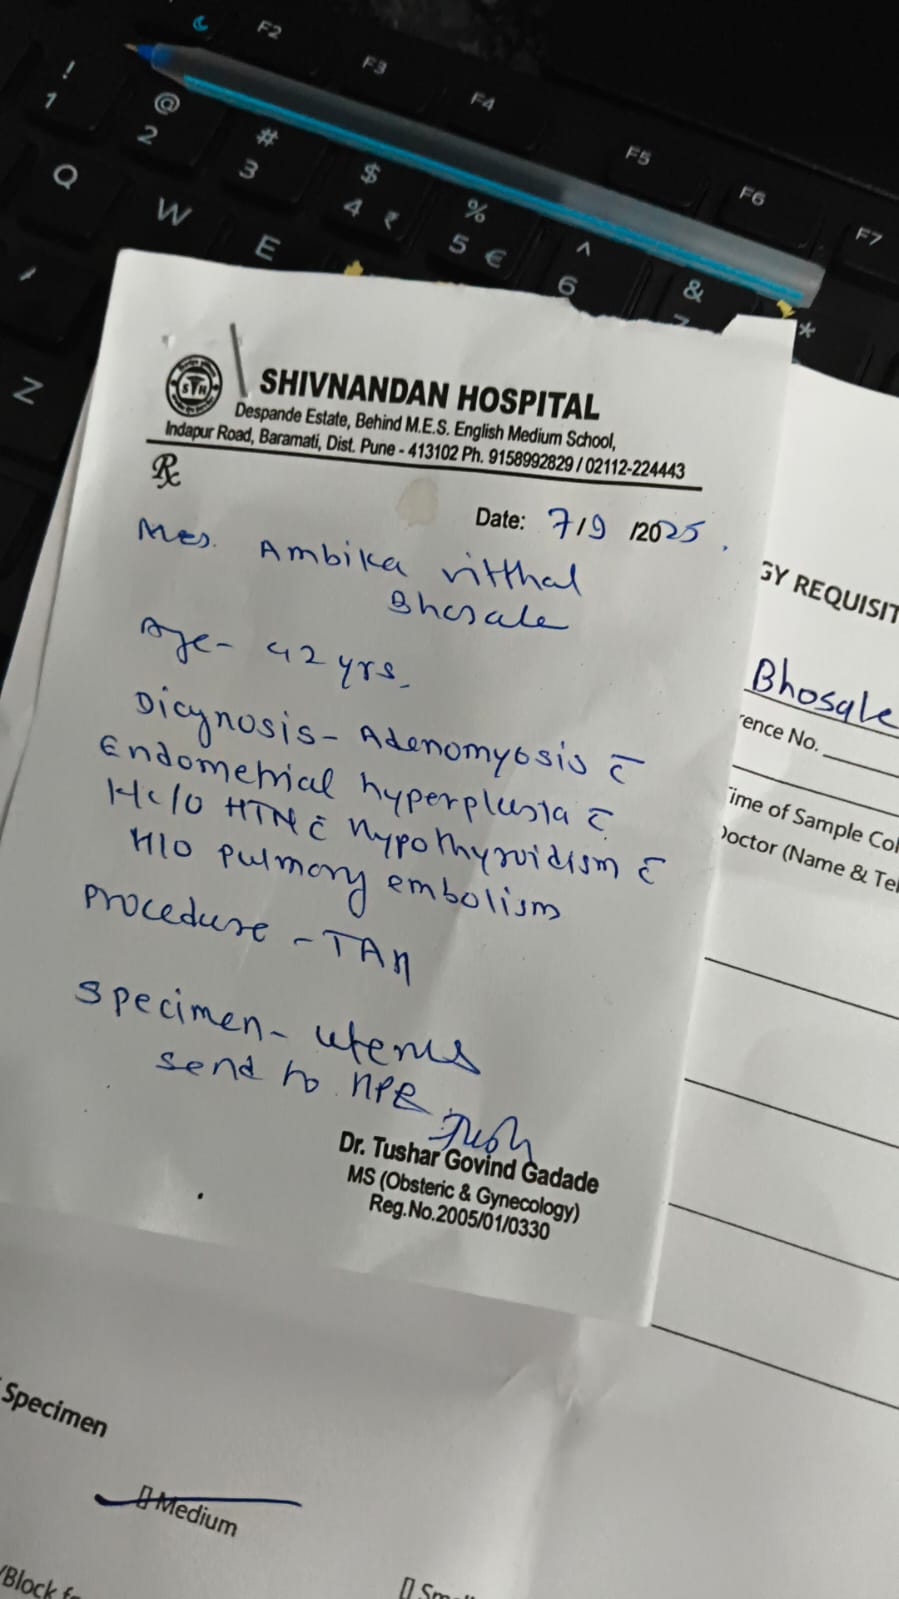 F2
F3
F4
F5
F6
F7
!
1
@
2
#
3
$
4 ₹
%
5 €
^
6
&
7
*
Q
W
E
Z
STH
SHIVNANDAN HOSPITAL
Despande Estate, Behind M.E.S. English Medium School,
Indapur Road, Baramati, Dist. Pune - 413102 Ph. 9158992829 / 02112-224443
Rx
Date: 7/9 /2025.
Mrs. Ambika vitthal
Bhosale
Age- 42 yrs.
Diagnosis- Adenomyosis c̄
Endometrial hyperplasia c̄
HTN c̄ hypothyroidism c̄
H/O pulmonary embolism
Procedure - TAH
Specimen- uterus
send to HPE
Dr. Tushar Govind Gadade
MS (Obsteric & Gynecology)
Reg.No.2005/01/0330
GY REQUISIT
Bhosale
rence No.
ime of Sample Col
Doctor (Name & Tel
Specimen
▯ Medium
/Block f
▯ Sm